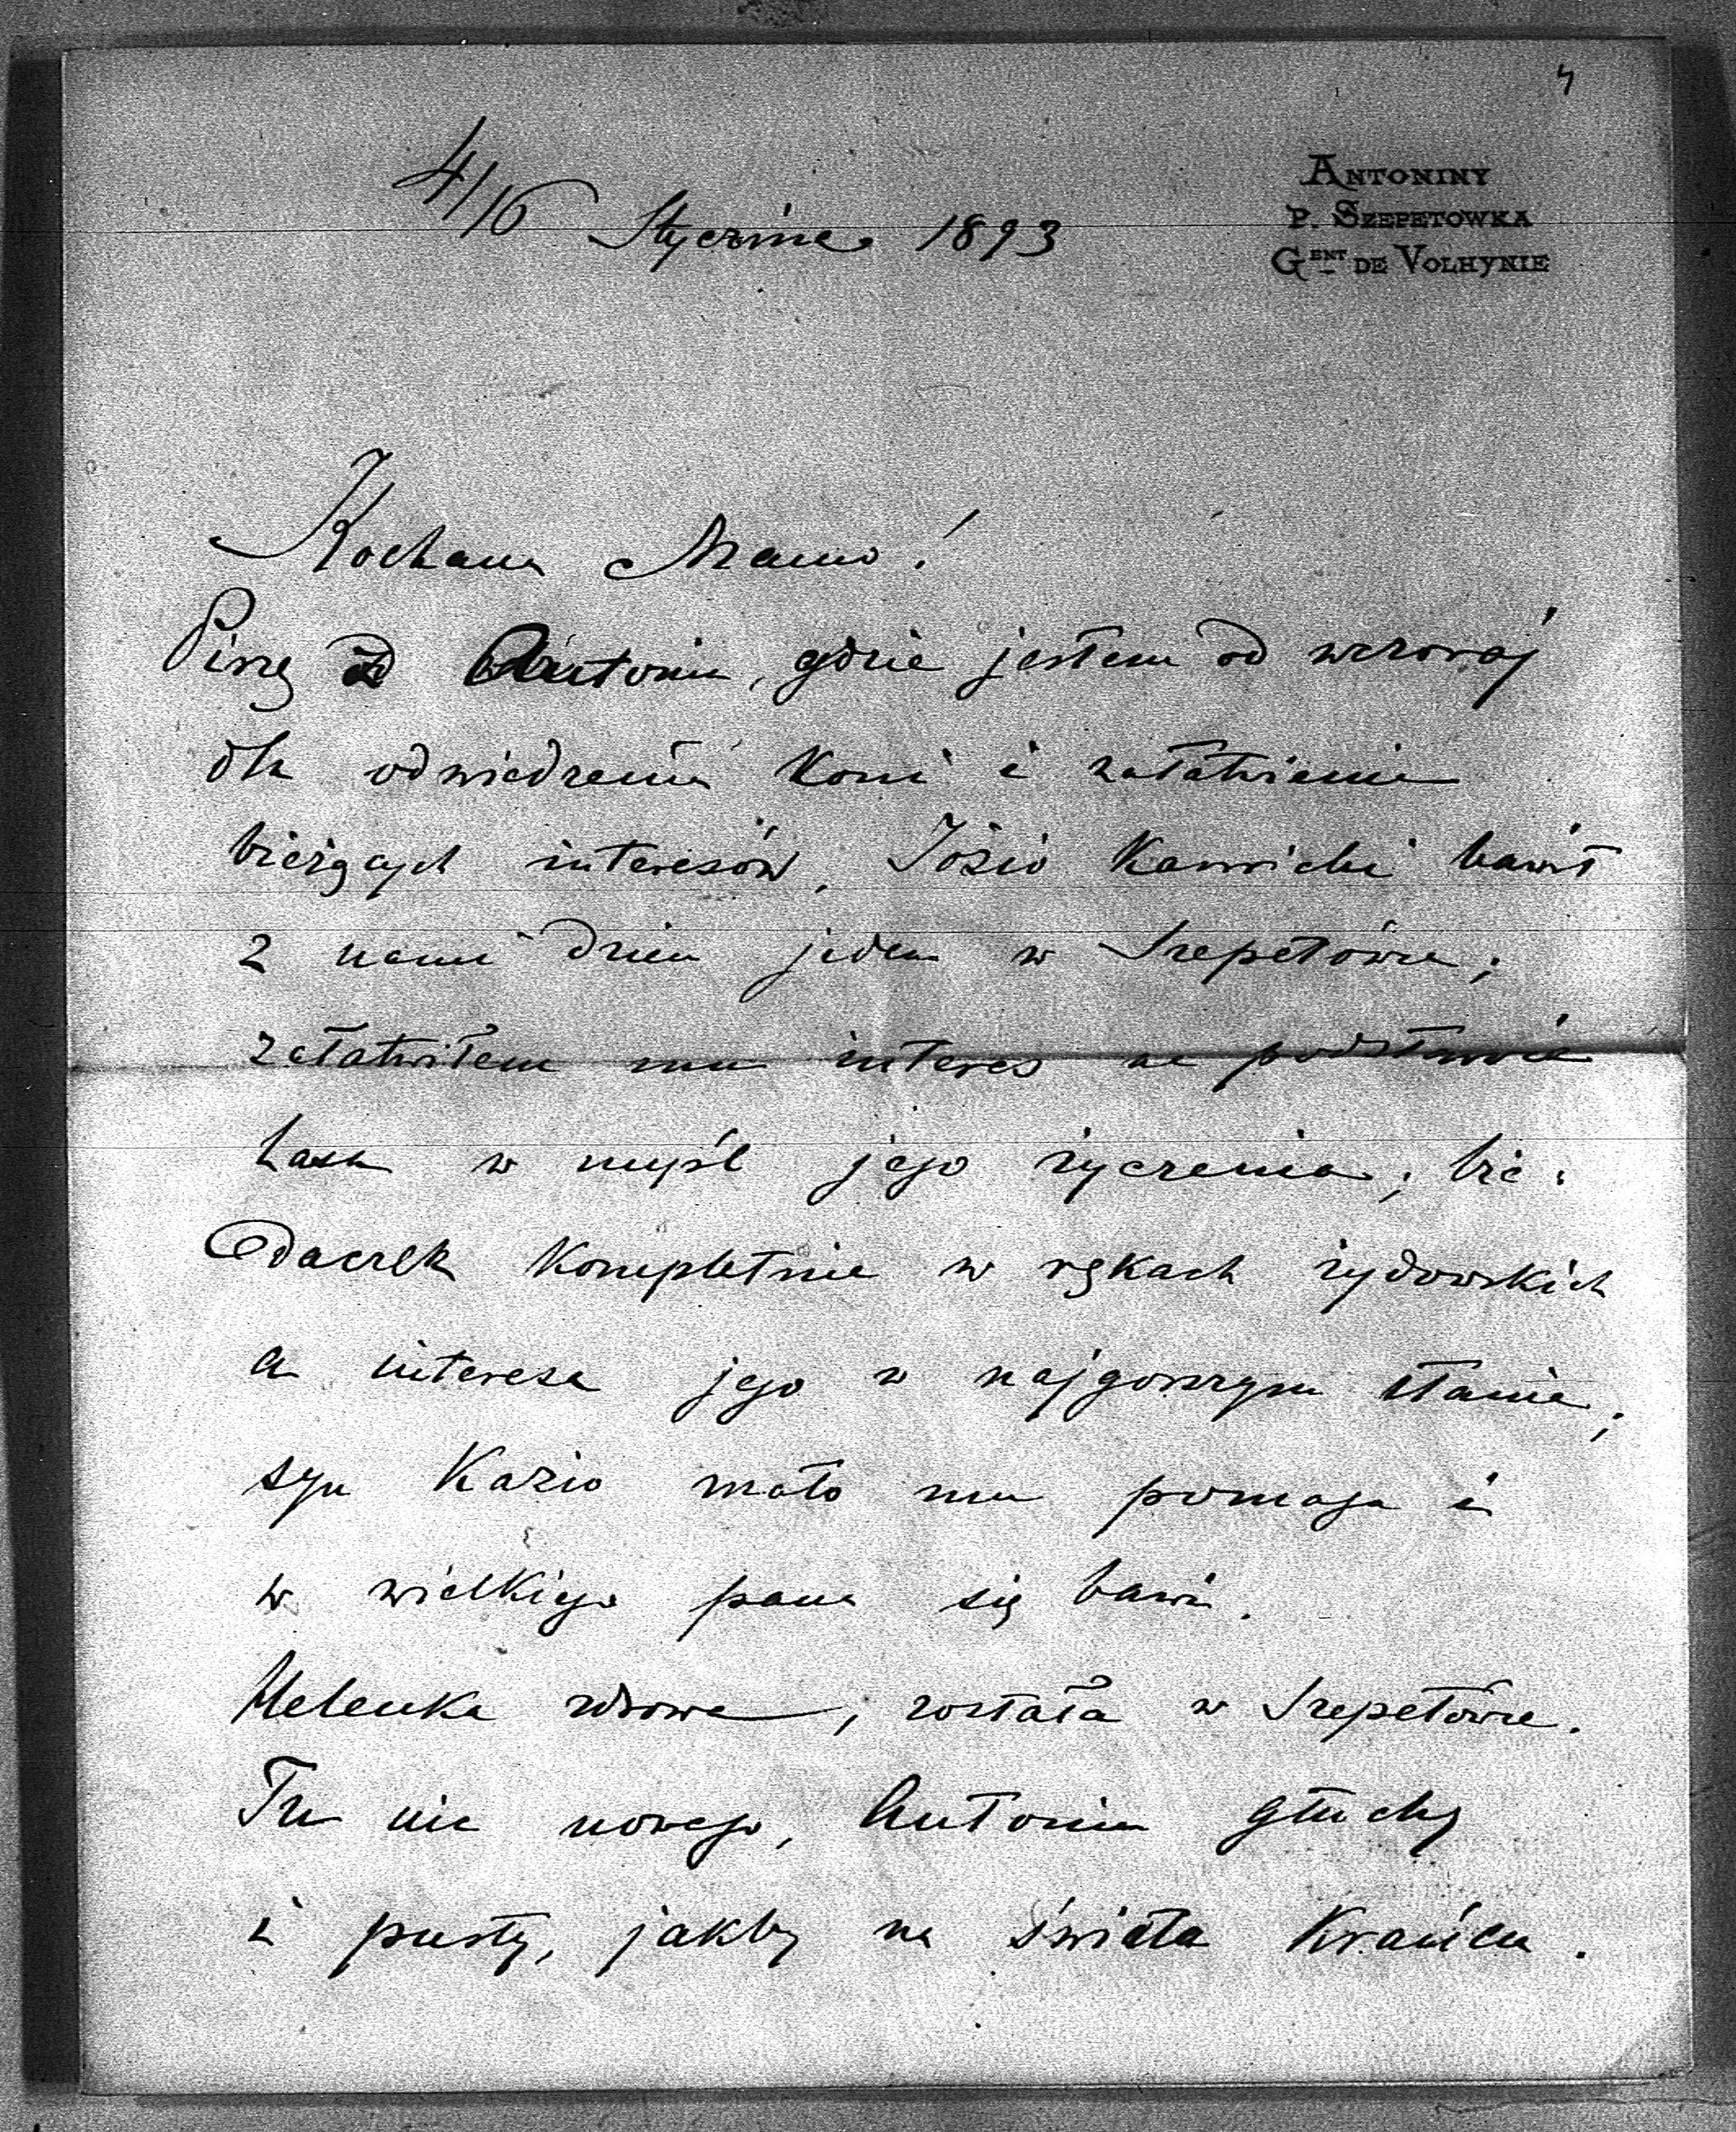 4
ANTONINY
P. SZEPETOWKA
GENT DE VOLHYNIE
4/16 Stycznia 1893
Kochana Mamo!
Piszę z Antonin, gdzie jestem od wczoraj
dla odwiedzenia koni i załatwienia
bieżących interesów. Józio Karwicki bawił
z nami dzień jeden w Szepetówce;
załatwiłem mu interes na podstawie
lasu w myśl jego życzenia; bie:
daczek kompletnie w rękach żydowskich
a interesa jego w najgorszym stanie;
syn Kazio mało mu pomaga i
w wielkiego pana się bawi.
Helenka zdrowa, została w Szepetówce.
Tu nic nowego, Antonin głuchy
i pusty, jakby na świata krańcu.